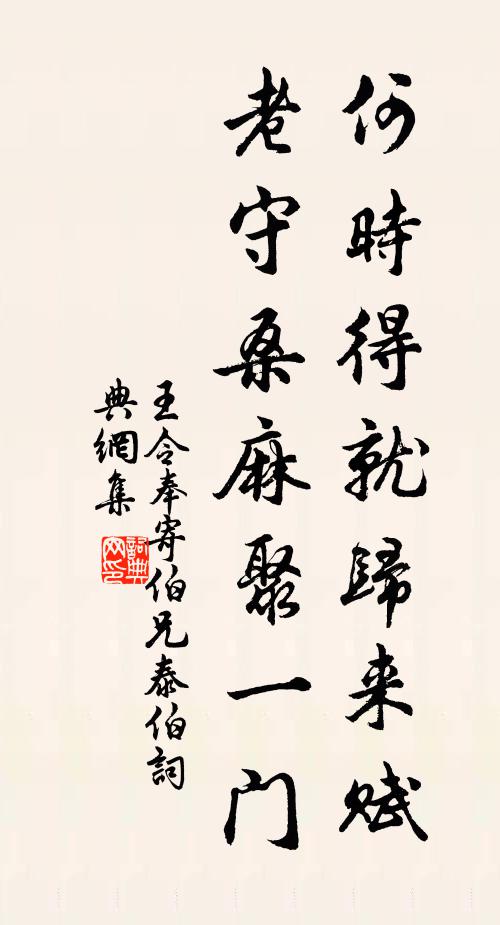 何時得就歸来赋
老守桑麻聚一门
王令奉寄伯兄泰伯詞
典網集
詞典
网印